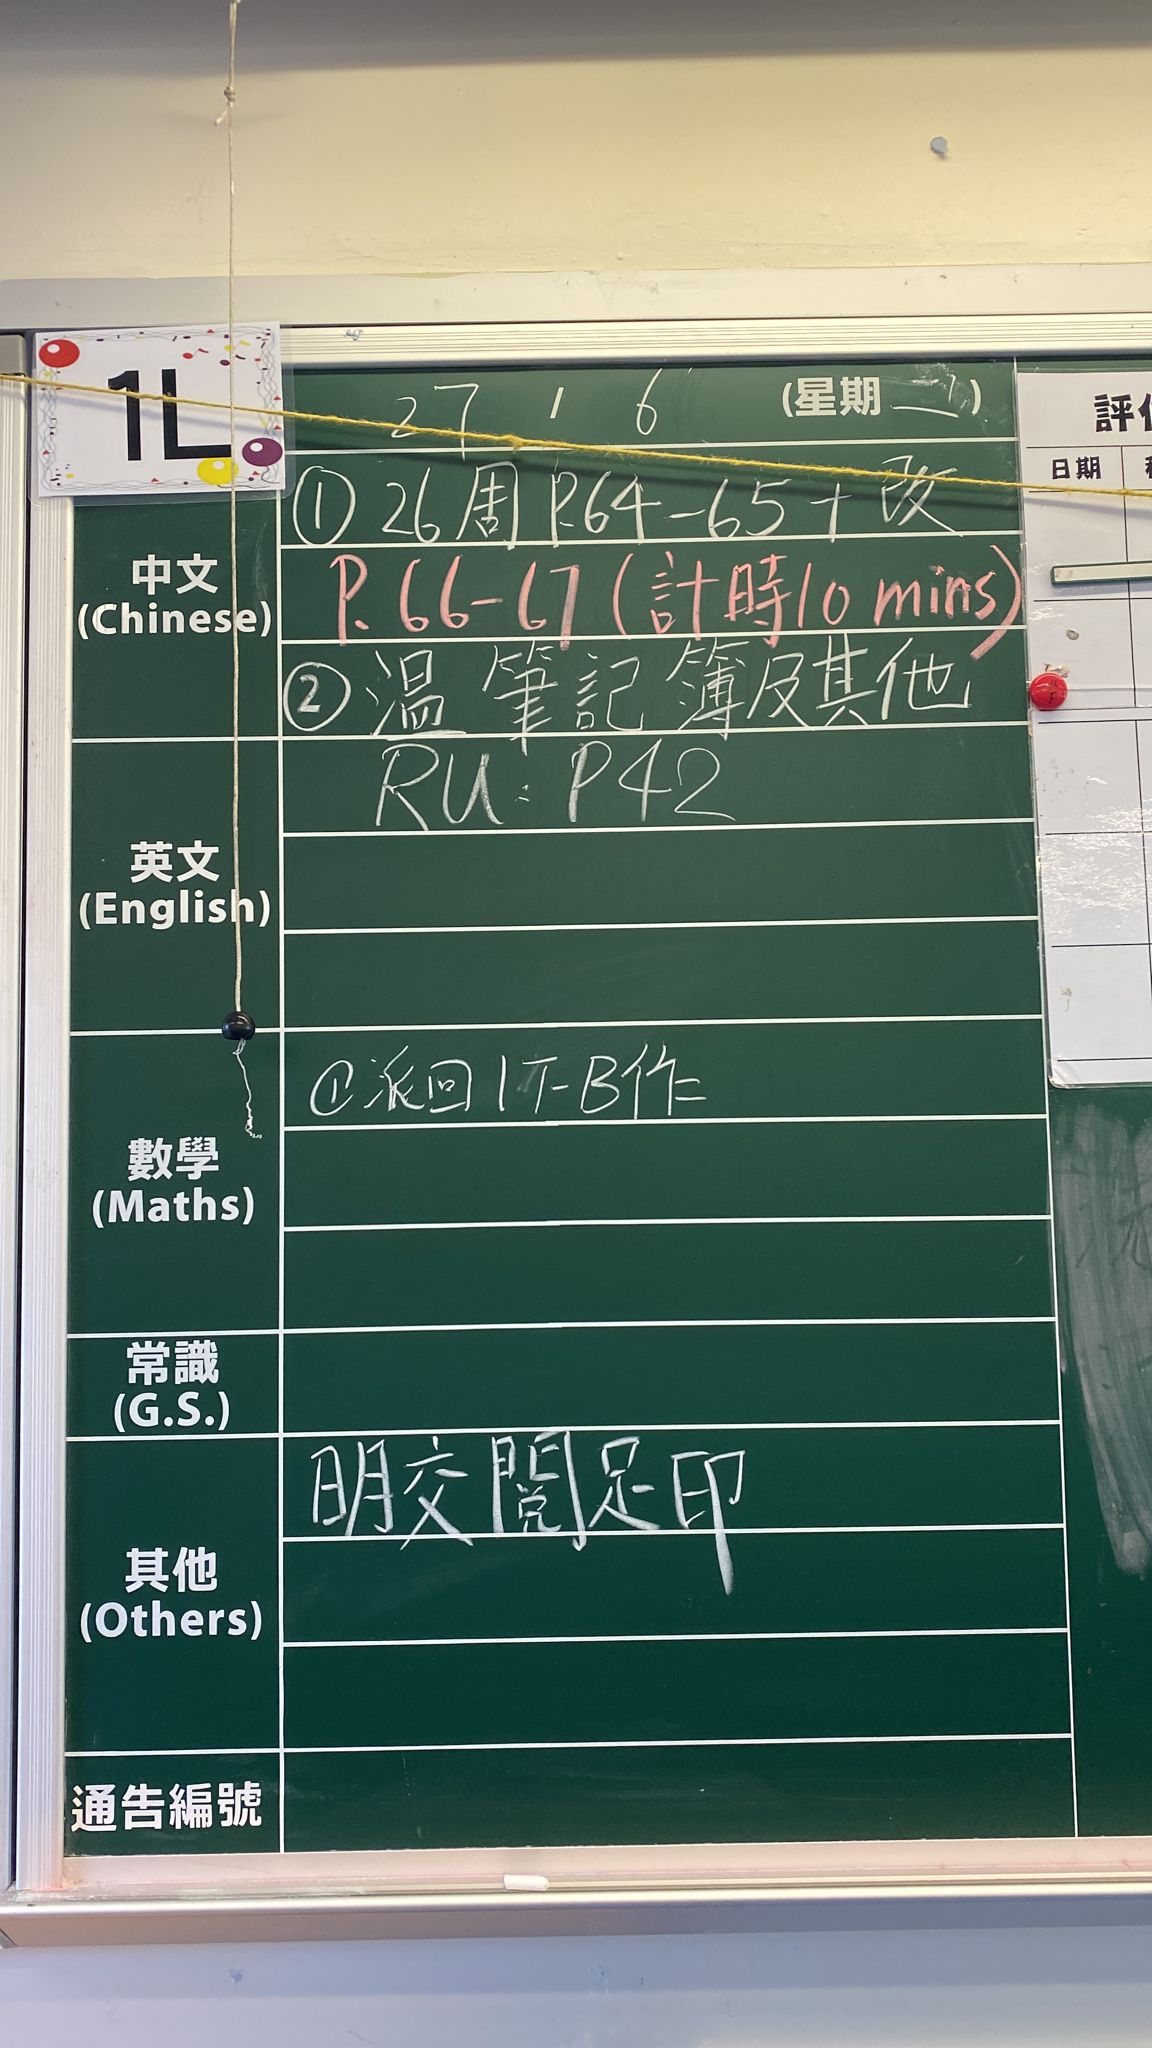 1L
27 / 6 (星期二)
中文
(Chinese)
① 26周 P.64-65 + 改
P. 66-67 (計時10 mins)
② 溫 筆記 簿及其他
英文
(English)
RU: P42
數學
(Maths)
① 派回 1下-B作
常識
(G.S.)
其他
(Others)
明交閱足印
通告編號
日期